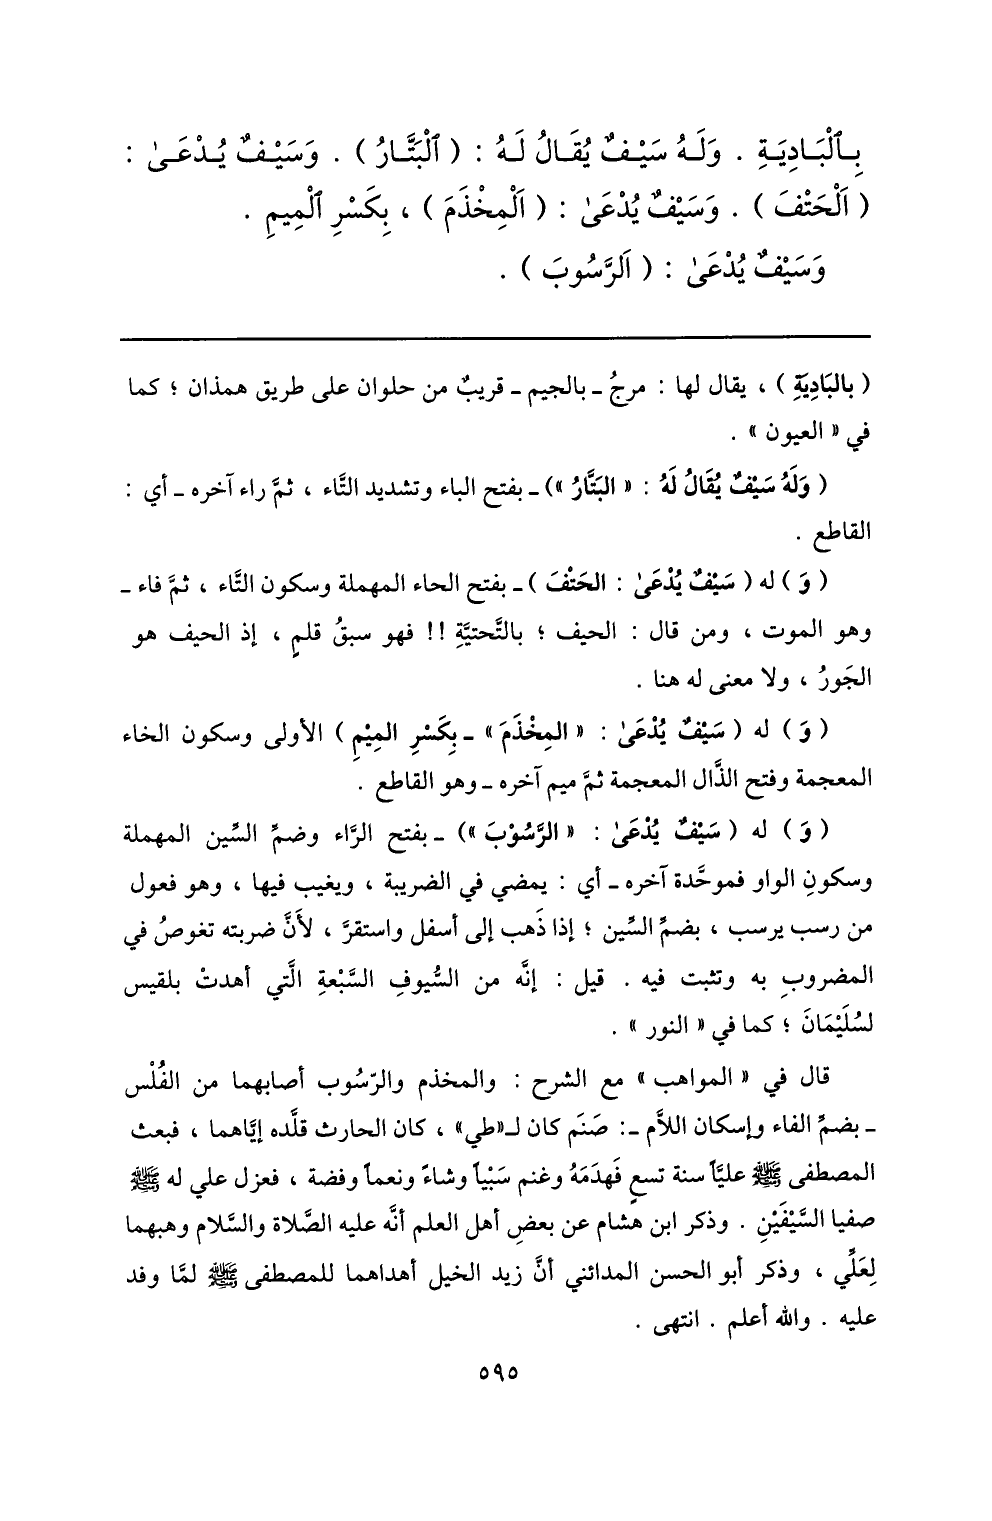 بِٱلْبَـادِيَـةِ . وَلَـهُ سَيْـفٌ يُقَـالُ لَـهُ : ( ٱلْبَتَّـارُ ) . وَسَيْـفٌ يُـدْعَـىٰ :
( ٱلْحَتْفَ ) . وَسَيْفٌ يُدْعَىٰ : ( ٱلْمِخْذَمَ ) ، بِكَسْرِ ٱلْمِيمِ .
وَسَيْفٌ يُدْعَىٰ : ( ٱلرَّسُوبَ ) .
( بالبَادِيَةِ ) ، يقال لها : مرجُ ـ بالجيم ـ قريبٌ من حلوان على طريق همذان ؛ كما
في « العيون » .
( وَلَهُ سَيْفٌ يُقَالُ لَهُ : « البَتَّارُ ») ـ بفتح الباء وتشديد التَّاء ، ثمَّ راء آخره ـ أي :
القاطع .
( وَ ) له ( سَيْفٌ يُدْعَىٰ : الحَتْفَ ) ـ بفتح الحاء المهملة وسكون التَّاء ، ثمَّ فاء ـ
وهو الموت ، ومن قال : الحيف ؛ بالتَّحتيَّةِ !! فهو سبقُ قلمٍ ، إذ الحيف هو
الجَورُ ، ولا معنى له هنا .
( وَ ) له ( سَيْفٌ يُدْعَىٰ : « المِخْذَمَ » ـ بِكَسْرِ المِيْمِ ) الأولى وسكون الخاء
المعجمة وفتح الذَّال المعجمة ثمَّ ميم آخره ـ وهو القاطع .
( وَ ) له ( سَيْفٌ يُدْعَىٰ : « الرَّسُوْبَ ») ـ بفتح الرَّاء وضمِّ السِّين المهملة
وسكونِ الواو فموحَّدة آخره ـ أي : يمضي في الضريبة ، ويغيب فيها ، وهو فعول
من رسب يرسب ، بضمِّ السِّين ؛ إذا ذَهب إلى أسفل واستقرَّ ، لأَنَّ ضربته تغوصُ في
المضروبِ به وتثبت فيه . قيل : إنَّه من السُّيوفِ السَّبْعةِ الَّتي أهدتْ بلقيس
لسُلَيْمَانَ ؛ كما في « النور » .
قال في « المواهب » مع الشرح : والمخذم والرّسُوب أصابهما من الفُلْس
ـ بضمِّ الفاء وإسكان اللاَّم ـ: صَنَم كان لـ«طي» ، كان الحارث قلَّده إيَّاهما ، فبعث
المصطفى ﷺ عليَّاً سنة تسعٍ فَهدَمَهُ وغنم سَبْياً وشاءً ونعماً وفضة ، فعزل علي له ﷺ
صفيا السَّيْفَيْنِ . وذكر ابن هشام عن بعضِ أهل العلم أنَّه عليه الصَّلاة والسَّلام وهبهما
لِعَلِّي ، وذكر أبو الحسن المدائني أنَّ زيد الخيل أهداهما للمصطفى ﷺ لمَّا وفد
عليه . والله أعلم . انتهى .
٥٩٥